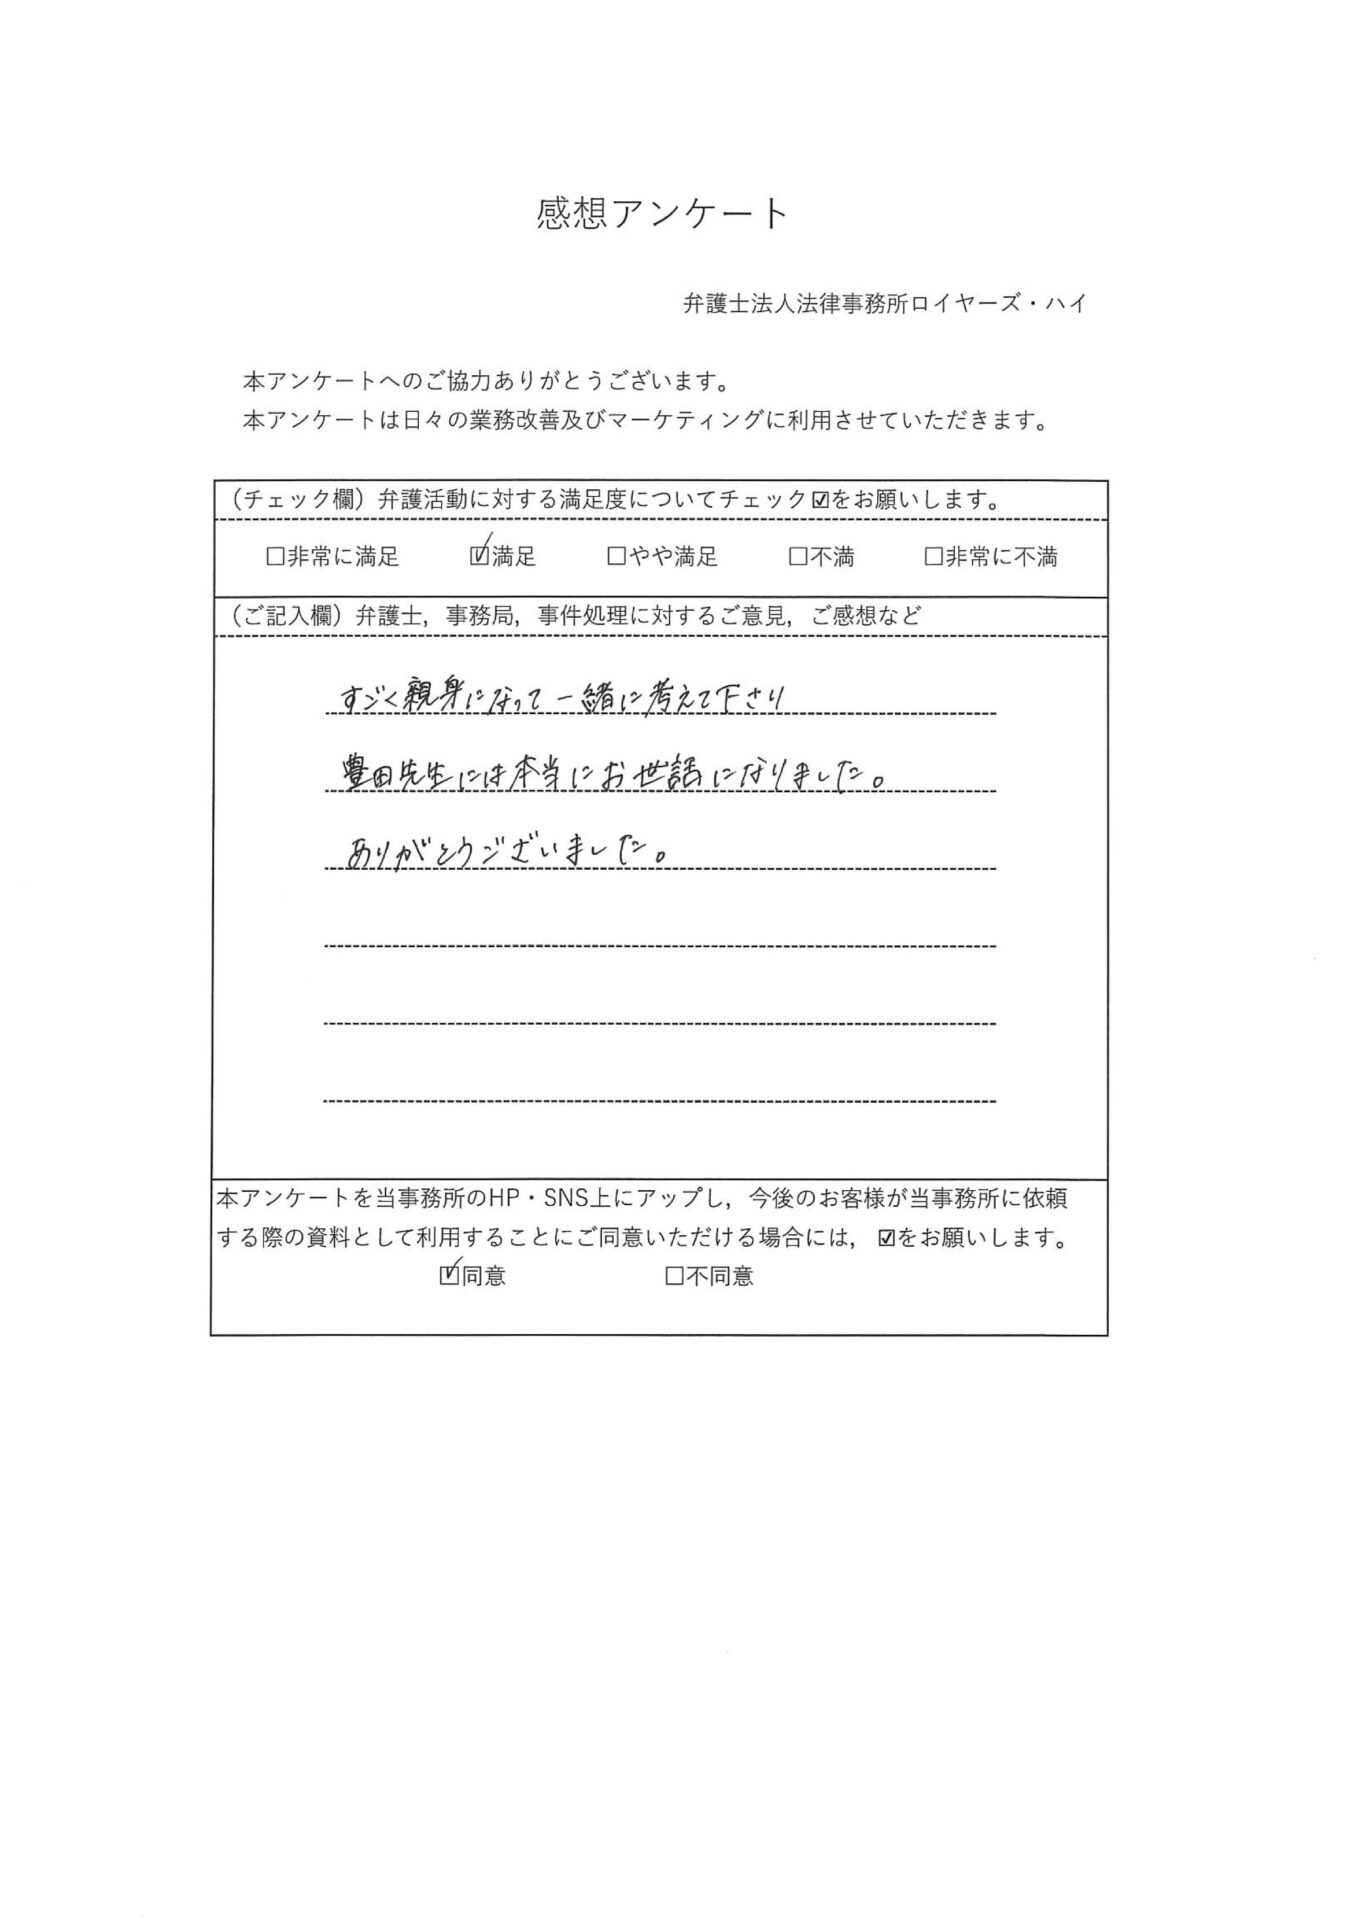 感想アンケート
弁護士法人法律事務所ロイヤーズ・ハイ
本アンケートへのご協力ありがとうございます。
本アンケートは日々の業務改善及びマーケティングに利用させていただきます。
（チェック欄）弁護活動に対する満足度についてチェック☑をお願いします。
□非常に満足 ☑満足 □やや満足 □不満 □非常に不満
（ご記入欄）弁護士，事務局，事件処理に対するご意見，ご感想など
すごく親身になって一緒に考えて下さり
豊田先生には本当にお世話になりました。
ありがとうございました。
本アンケートを当事務所のHP・SNS上にアップし，今後のお客様が当事務所に依頼
する際の資料として利用することにご同意いただける場合には，☑をお願いします。
☑同意 □不同意